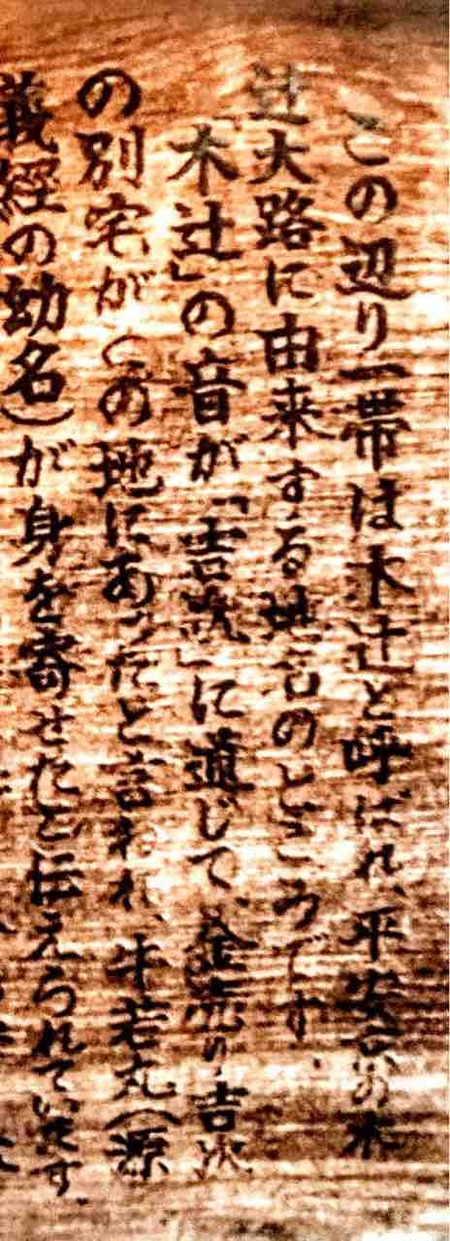 この辺り一帯は木辻と呼ばれ、平安京の木
辻大路に由来する地のところですが、
木辻」の音が「吉次」に通じて、金売り吉次
の別宅がこの地にあったと言われ、牛若丸（源
義經の幼名）が身を寄せたと伝えられています。